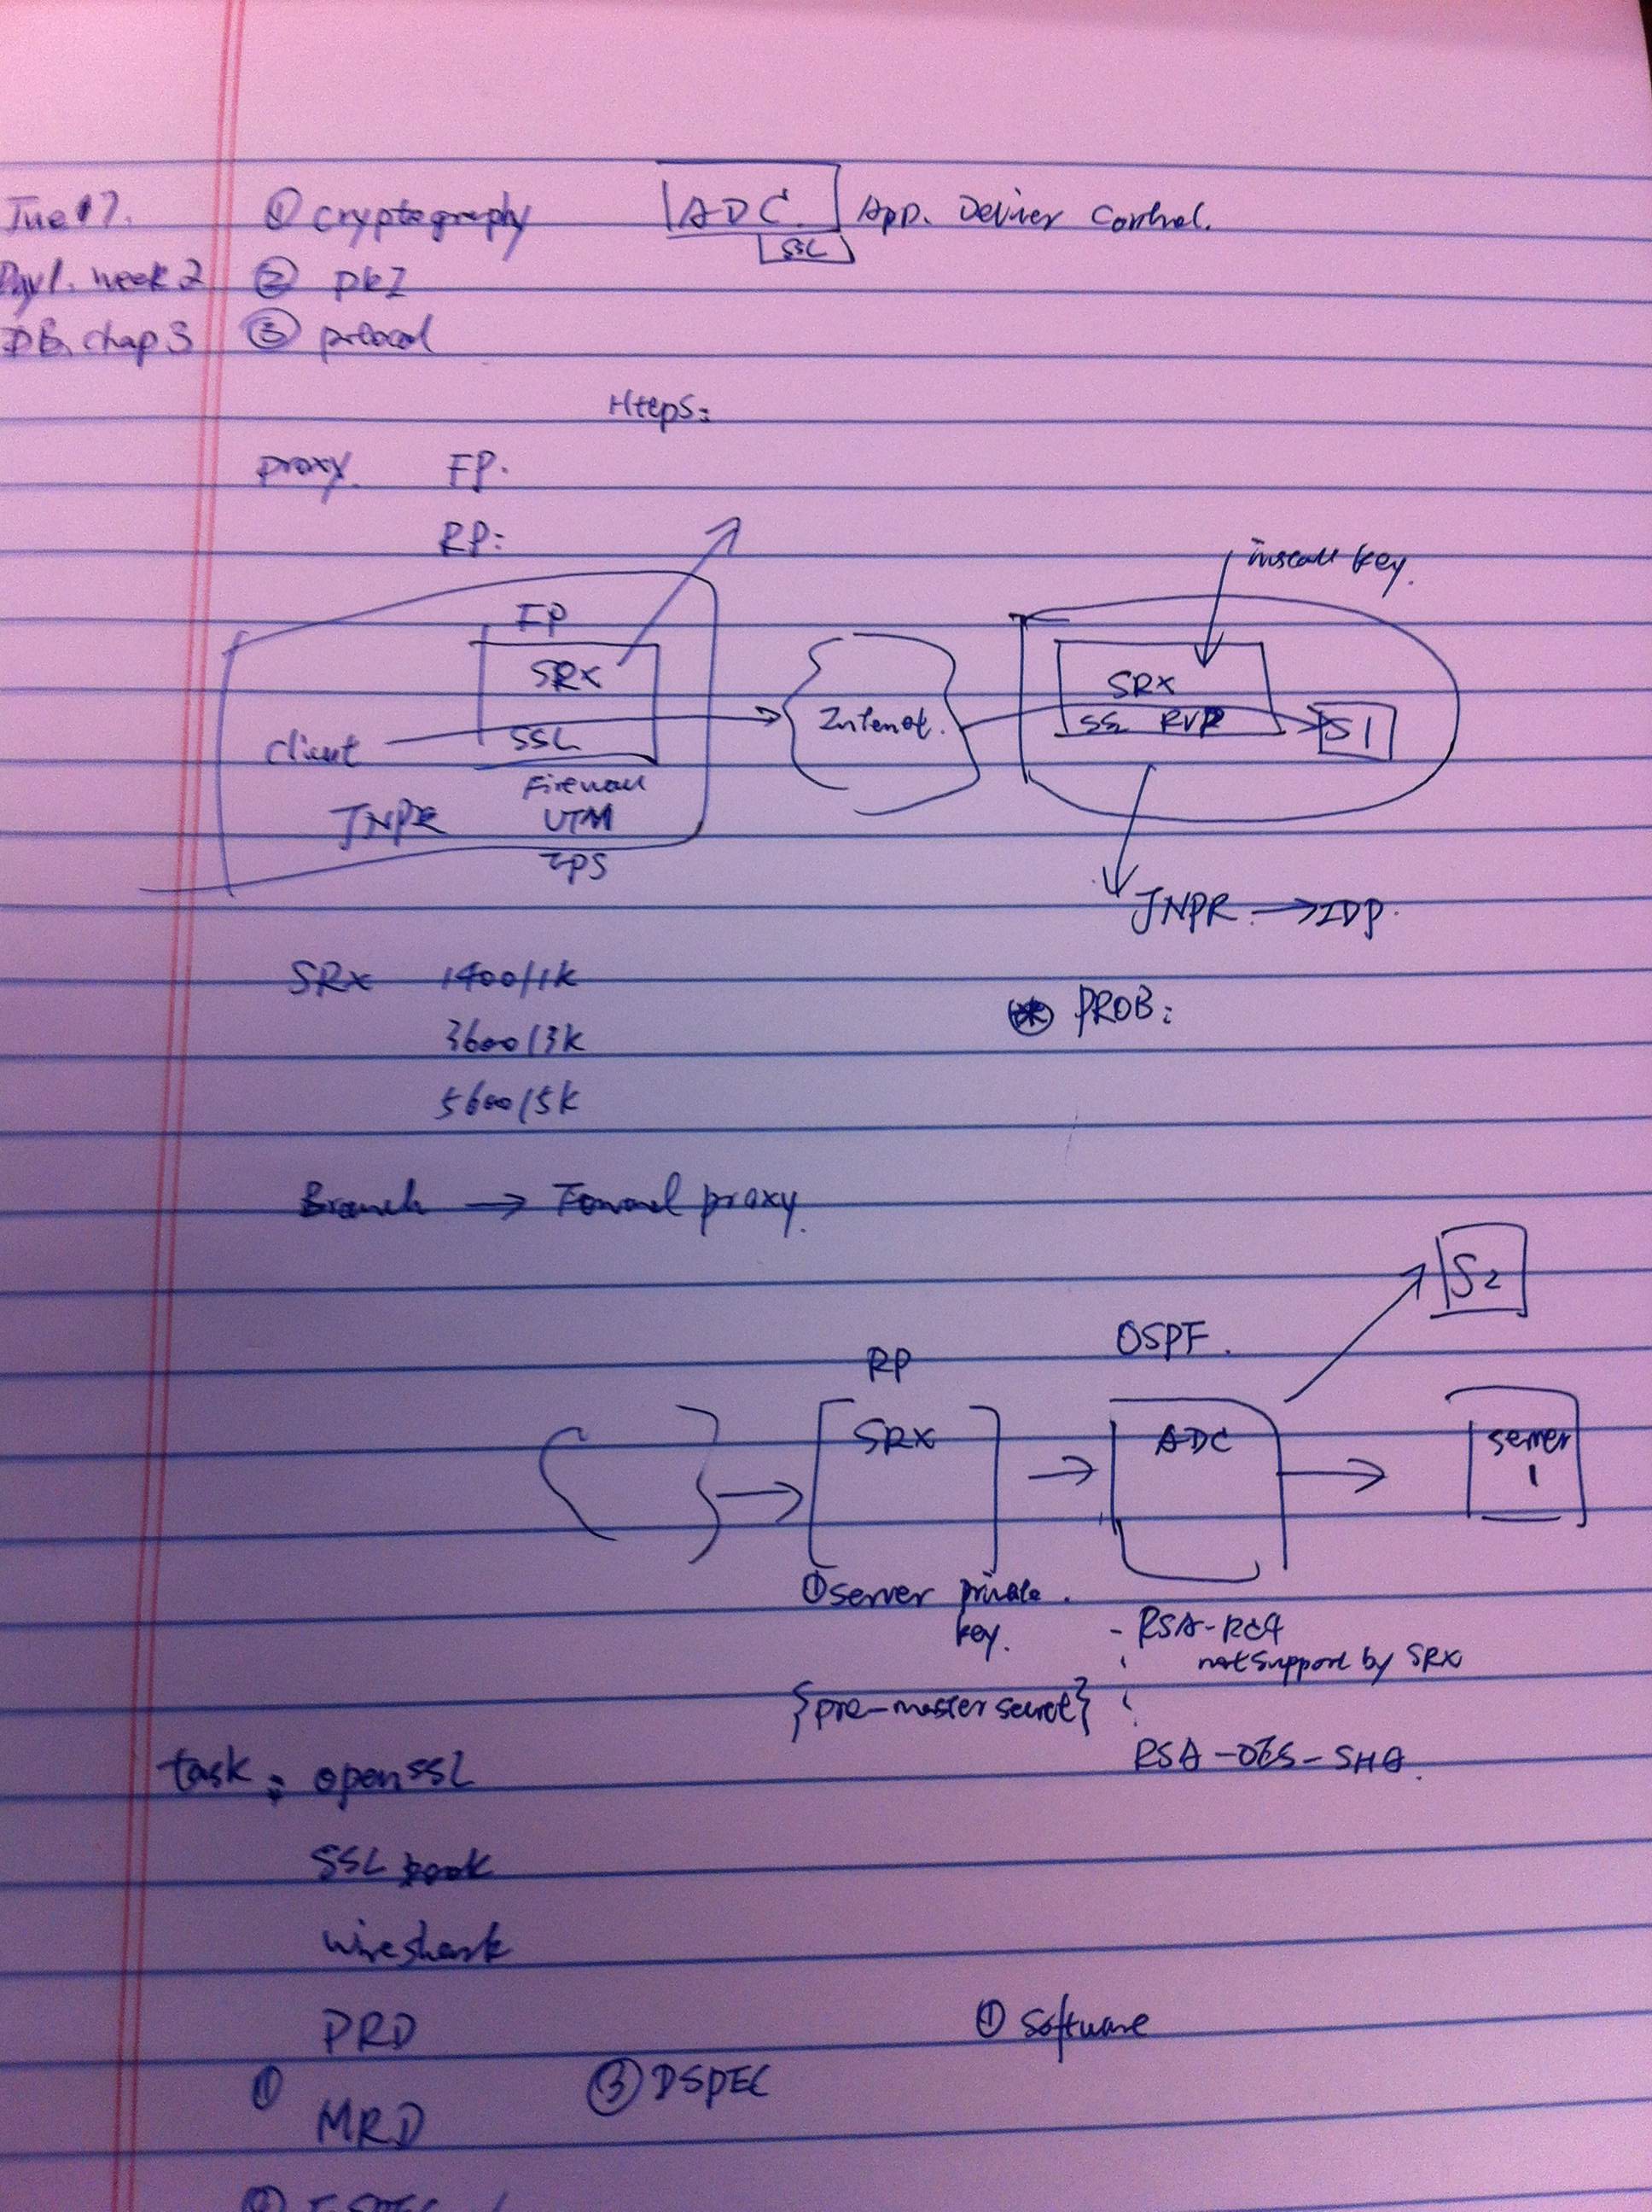 Tue 17.
Day1. week 2
DB, chap 3
① cryptography
② PKI
③ protocol
ADC App. Deliver Control.
SSL
Https:
proxy. FP.
RP:
FP
SRX
SSL
client
Firewall
JNPR UTM
IPS
Internet.
install key.
SRX
SSL RVP
S1
JNPR → IDP.
SRX 1400/1k
3600/3k
5600/5k
* PROB:
Branch → Forward proxy.
S2
OSPF.
RP
SRX
ADC
server
1
① server private
key.
- RSA-RC4
not support by SRX
{pre-master secret}
RSA-DES-SHA.
task: openssl
SSL book
wireshark
PRD
① MRD
③ DSPEC
① software
② FSPEC